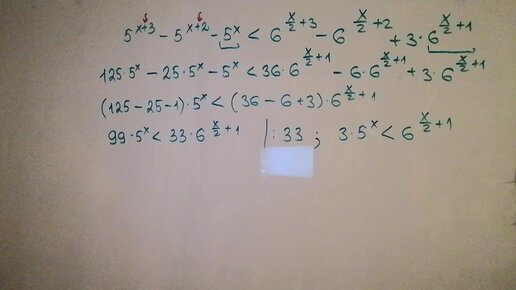 5^{x+3} - 5^{x+2} - 5^x < 6^{\frac{x}{2}+3} - 6^{\frac{x}{2}+2} + 3 \cdot 6^{\frac{x}{2}+1}
125 \cdot 5^x - 25 \cdot 5^x - 5^x < 36 \cdot 6^{\frac{x}{2}+1} - 6 \cdot 6^{\frac{x}{2}+1} + 3 \cdot 6^{\frac{x}{2}+1}
(125 - 25 - 1) \cdot 5^x < (36 - 6 + 3) \cdot 6^{\frac{x}{2}+1}
99 \cdot 5^x < 33 \cdot 6^{\frac{x}{2}+1} | : 33 ; 3 \cdot 5^x < 6^{\frac{x}{2}+1}